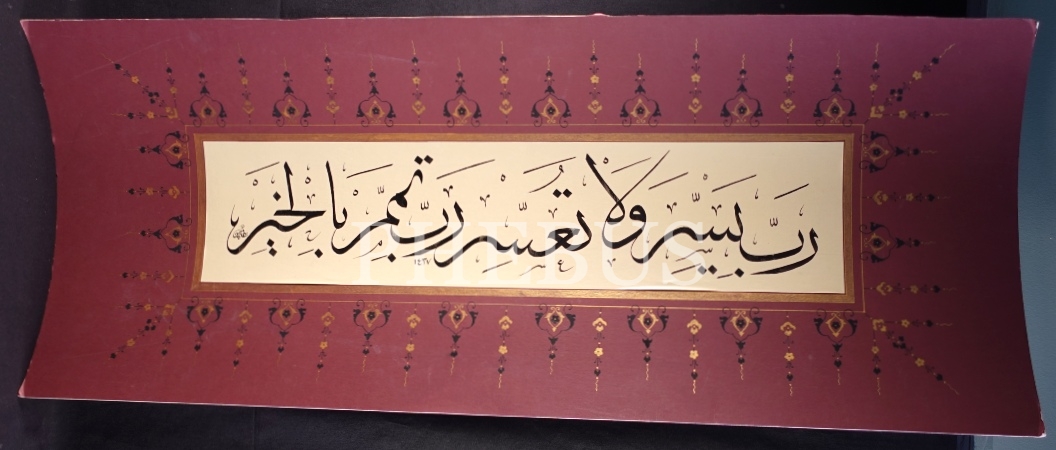 رب يسر ولا تعسر رب تمم بالخير
١٤٣٧
PHEBUS